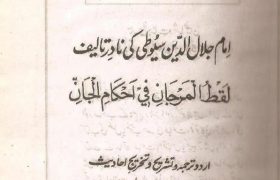 امام جلال الدّین سیوطیؒ کی نادر تالیف
لَقْطُ الْمَرْجَانِ فِيْ اَحْكَامِ الْجَانِّ
اردو ترجمہ و تشریح و تخریج احادیث